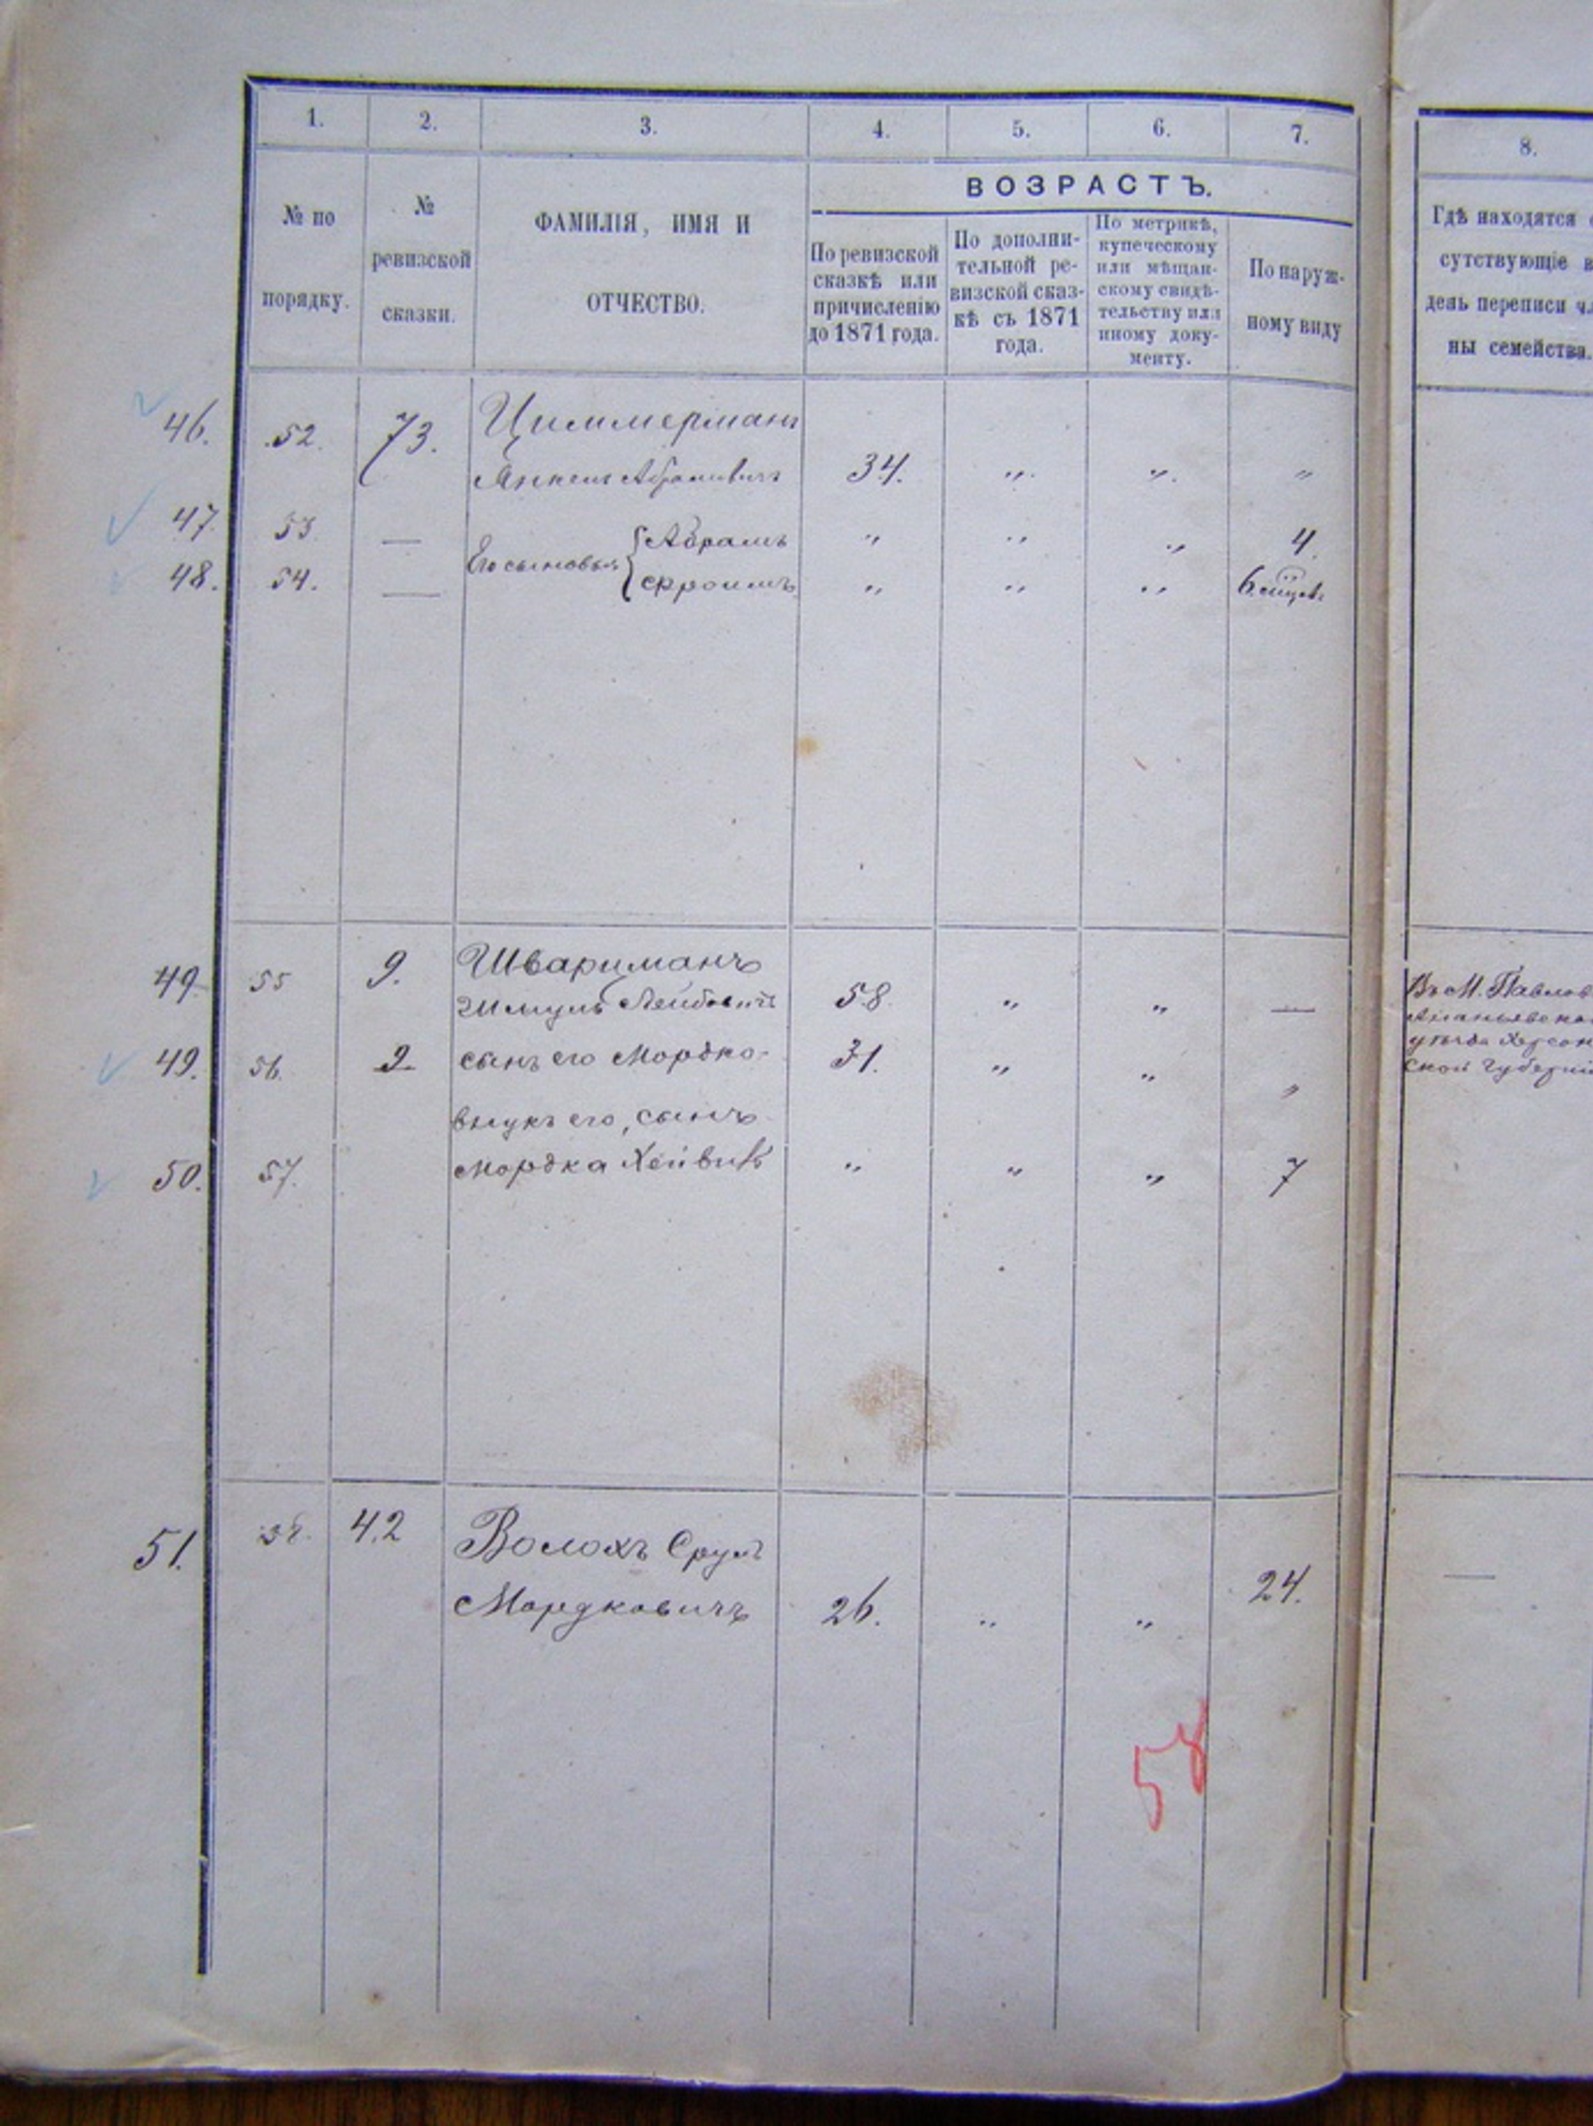 1. 2. 3. 4. 5. 6. 7. 8.
№ по порядку.
№ ревизской сказки.
ФАМИЛІЯ, ИМЯ И ОТЧЕСТВО.
ВОЗРАСТЪ.
По ревизской сказкѣ или причисленію до 1871 года.
По дополни-
тельной ре-
визской сказ-
кѣ съ 1871
года.
По метрикѣ,
купеческому
или мѣщан-
скому свидѣ-
тельству или
иному доку-
менту.
По наруж-
ному виду
Гдѣ находятся
сутствующіе
день переписи
ны семейства.
46. 52. 73. Циммерманъ
Янкель Абрамовичъ 34. „ „ „
47. 53. — Его сыновья { Абрамъ „ „ „ 4.
48. 54. — Фроимъ „ „ „ 6.
49. 55 9. Шварцманъ
Шмуль Лейбовичъ 58 „ „ — Въ М. Павлов
Ананьевско
уѣзда Херсон
ской Губерніи
49. 56. 9. сынъ его Мордко 31. „ „ „
внукъ его, сынъ
50. 57. Мордка Хейвикъ „ „ „ 7
51. 58. 42 Волохъ Сруль
Мордковичъ 26. „ „ 24. —
58